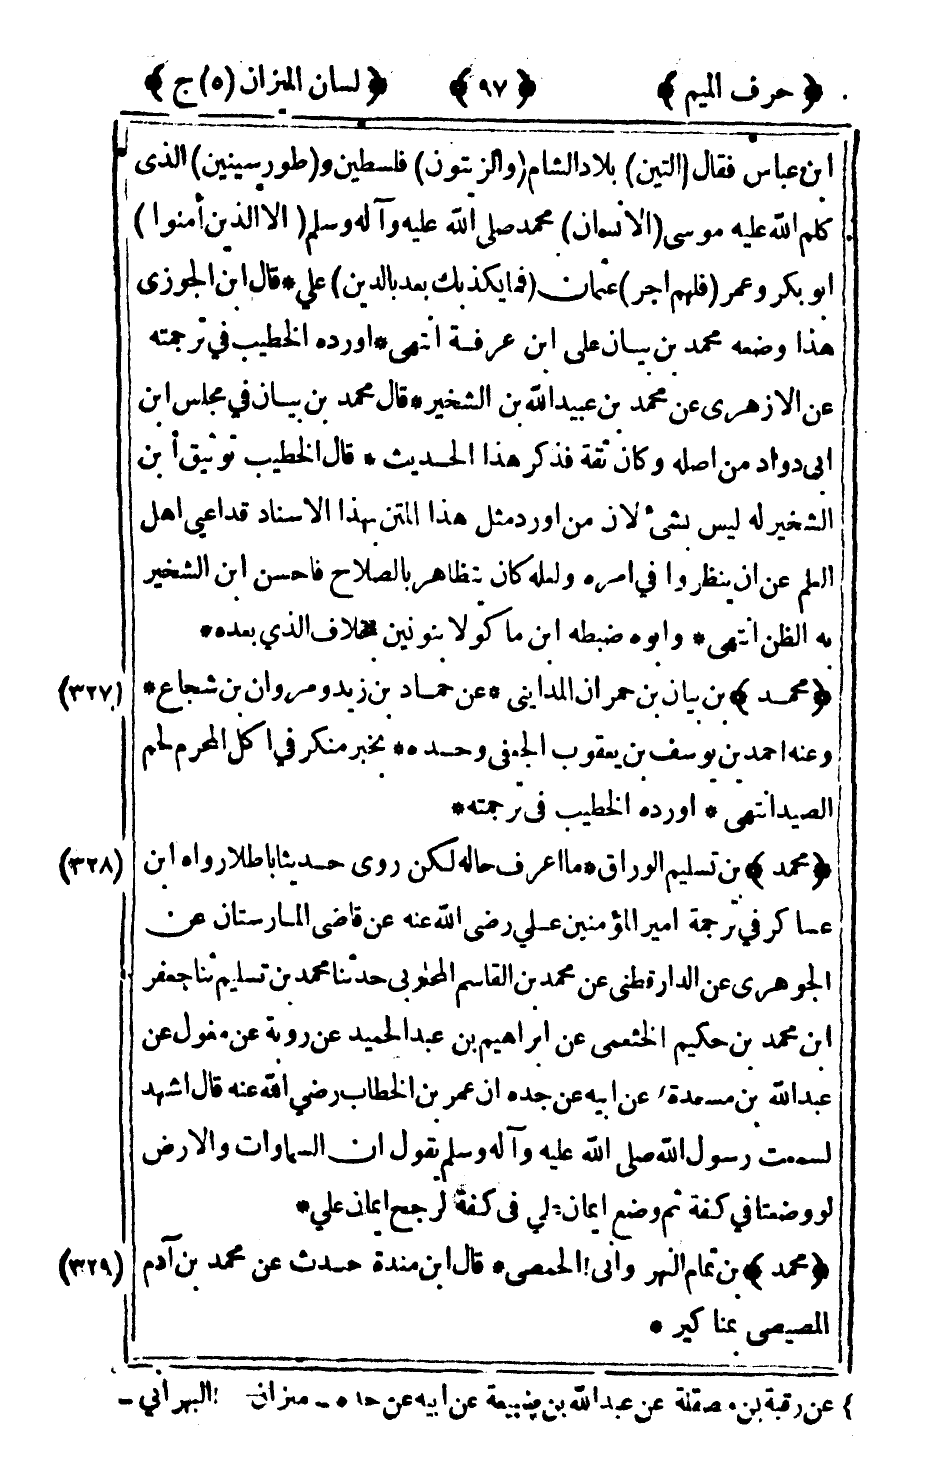 ﴿ حرف الميم ﴾ ﴿ ٩٧ ﴾ ﴿ لسان الميزان (٥) ج ﴾
ابن عباس فقال (التين) بلاد الشام (والزيتون) فلسطين و(طور سينين) الذى
كلم الله عليه موسى (الانسان) محمد صلى الله عليه وآله وسلم (الا الذين أمنوا)
ابو بكر وعمر (فلهم اجر) عثمان (فما يكذبك بعد بالدين) علي * قال ابن الجوزى
هذا وضعه محمد بن بيان على ابن عرفة انتهى * اورده الخطيب في ترجمته
عن الازهرى عن محمد بن عبيد الله بن الشخير * قال محمد بن بيان في مجلس ابن
ابى دواد من اصله وكان ثقة فذكر هذا الحديث * قال الخطيب توثيق أبن
الشخير له ليس بشئ لان من اورد مثل هذا المتن بهذا الاسناد قد اعيى اهل
العلم عن ان ينظروا في امره ولعله كان يتظاهر بالصلاح فاحسن ابن الشخير
به الظن انتهى * وابوه ضبطه ابن ماكولا بنونين بخلاف الذي بعده *
﴿ محمد ﴾ بن بيان بن حمران المدايني * عن حماد بن زيد ومروان بن شجاع * (٣٢٧)
وعنه احمد بن يوسف بن يعقوب الجعفى وحده * بخبر منكر في اكل المحرم لحم
الصيد انتهى * اورده الخطيب فى ترجمته *
﴿ محمد ﴾ بن تسليم الوراق * ما اعرف حاله لكن روى حديثا باطلا رواه ابن (٣٢٨)
عساكر في ترجمة امير المؤمنين علي رضى الله عنه عن قاضى المارستان عن
الجوهرى عن الدارقطنى عن محمد بن القاسم المحاربى حدثنا محمد بن تسليم ثنا جعفر
ابن محمد بن حكيم الخثعمى عن ابراهيم بن عبد الحميد عن روبة عن مغول عن
عبد الله بن مسعدة ؛ عن ابيه عن جده ان عمر بن الخطاب رضي الله عنه قال اشهد
لسمعت رسول الله صلى الله عليه وآله وسلم يقول ان السماوات والارض
لو وضعتا في كفة ثم وضع ايمان علي فى كفة لرجح ايمان علي *
﴿ محمد ﴾ بن تمام النهروانى ! الحمصى * قال ابن مندة حدث عن محمد بن آدم (٣٢٩)
المصيصى بمناكير *
} عن رقبة بن مصقلة عن عبد الله بن ضبيعة عن ابيه عن جده ـ ميزان ! البهرانى ـ